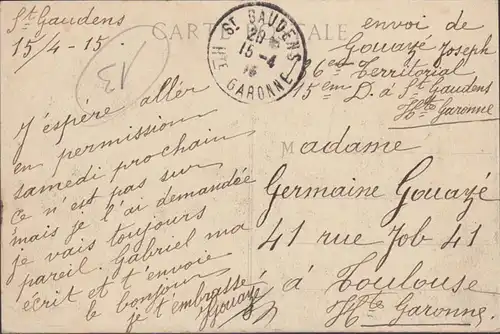 St Gaudens
15/4-15.
13
J'espère allér
en permission
samedi prochain
ce n'est pas sur
mais je l'ai demandée
je vais toujours
pareil. Gabriel ma
écrit et t'envoie
le bonjour
je t'embrasse
JGouazé
CARTE POSTALE
HTE ST GAUDENS
20
15-4
GARONNE
envoi de
Gouazé Joseph
Territorial
15em D. à St Gaudens
Hte Garonne
Madame
Germaine Gouazé
41 rue Job 41
à Toulouse
Hte Garonne.